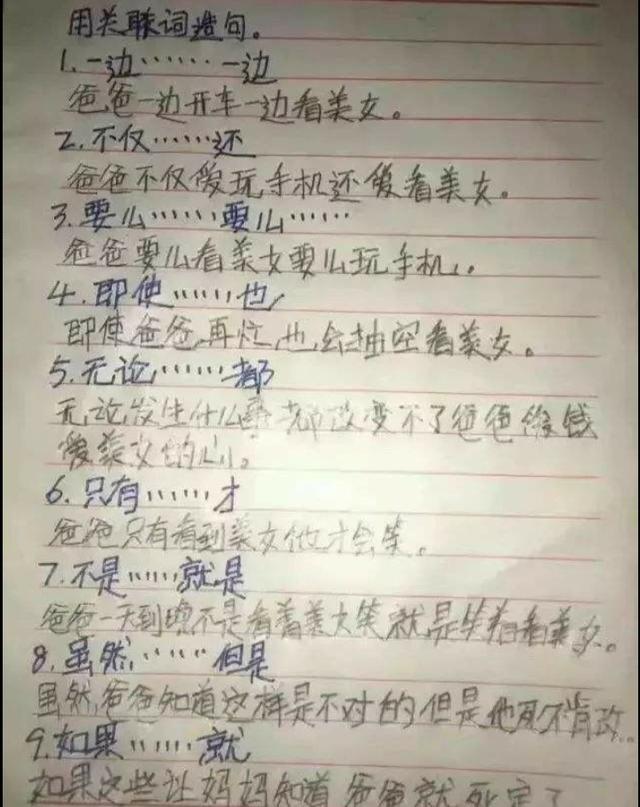 用关联词造句。
1.一边……一边
爸爸一边开车一边看美女。
2.不仅……还
爸爸不仅爱玩手机还爱看美女。
3.要么……要么……
爸爸要么看美女要么玩手机。
4.即使……也
即使爸爸再忙,也会抽空看美女。
5.无论……都
无论发生什么事都改变不了爸爸爱钱
爱美女的心。
6.只有……才
爸爸只有看到美女他才会笑。
7.不是……就是
爸爸一天到晚不是看着美女笑就是笑着看美女。
8.虽然……但是
虽然爸爸知道这样是不对的但是他死不肯改。
9.如果……就
如果这些让妈妈知道爸爸就死定了